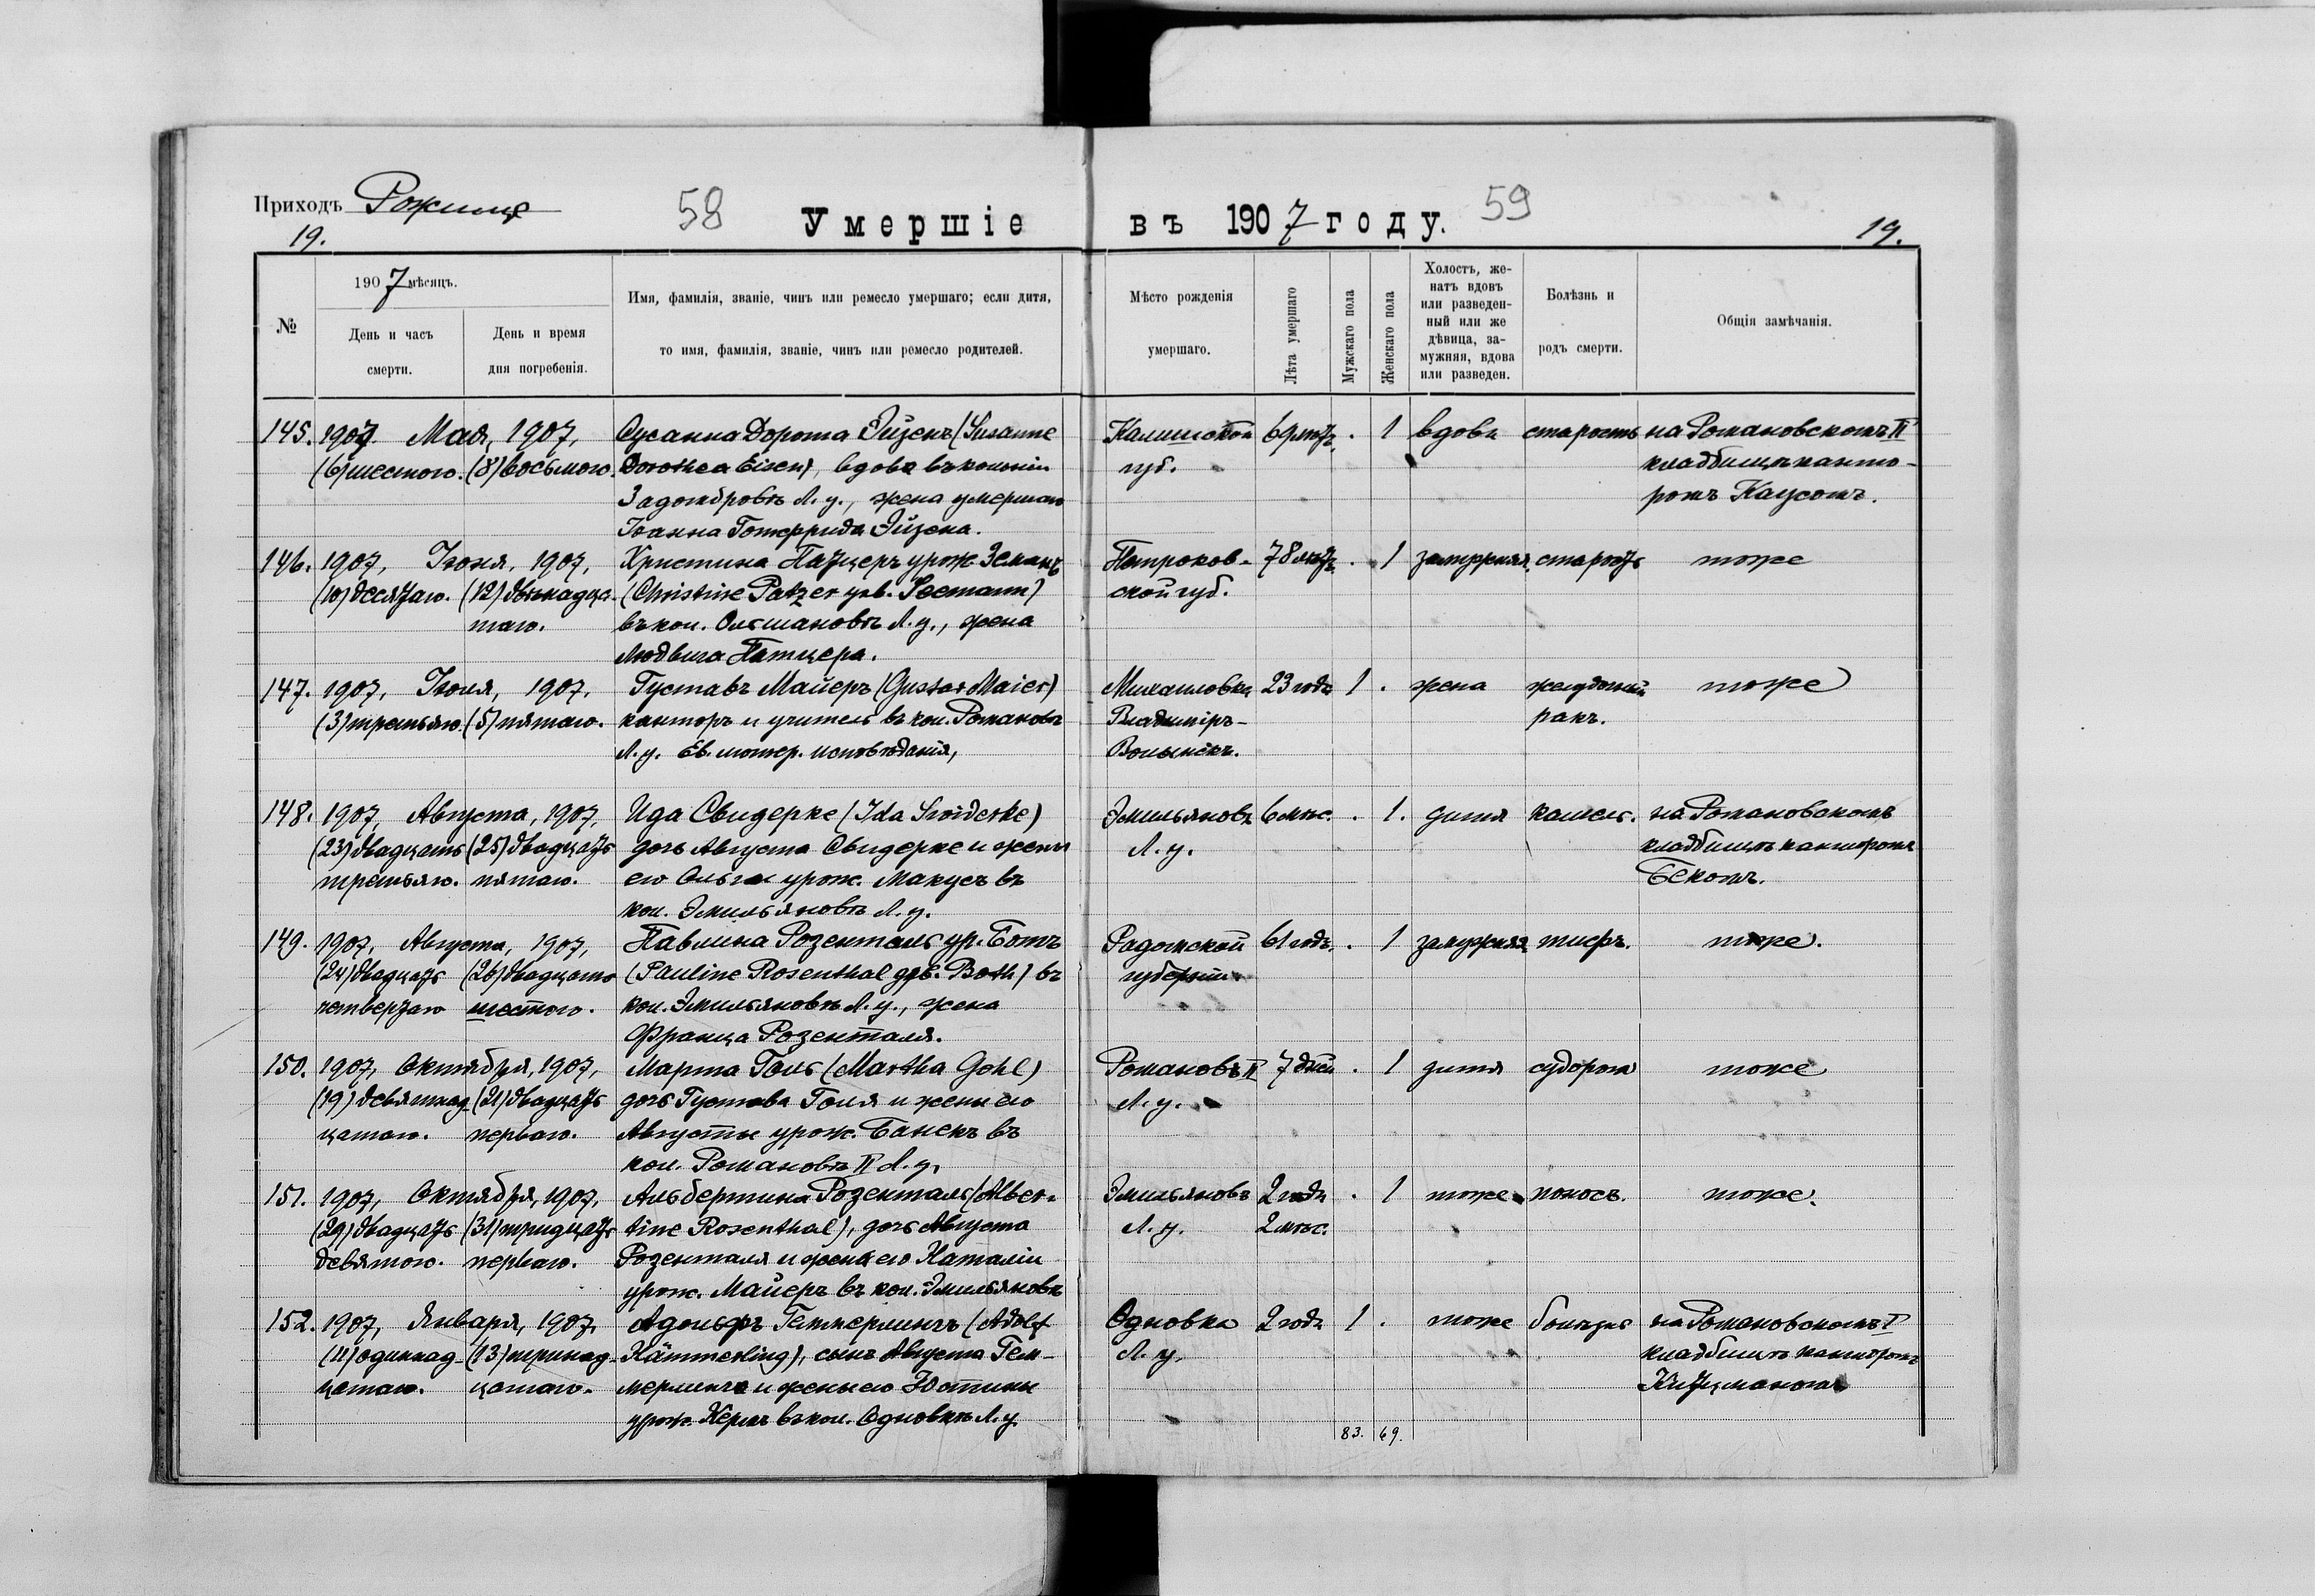 Приходъ Рожище
58
59
Умершіе въ 1907 году.
19.
19.
№
1907 мѣсяцъ.
День и часъ смерти.
День и время дня погребенія.
Имя, фамилія, званіе, чинъ или ремесло умершаго; если дитя,
то имя, фамилія, званіе, чинъ или ремесло родителей.
Мѣсто рожденія умершаго.
Лѣта умершаго
Мужскаго пола
Женскаго пола
Холостъ, же-
натъ вдовъ
или разведен-
ный или же
дѣвица, за-
мужняя, вдова
или разведен.
Болѣзнь и родъ смерти.
Общія замѣчанія.
145. 1907 Мая, 1907, Сусанна Дорота Эйзенъ (Susanne Калишской 69 лѣтъ . 1 вдова старость на Романовскомъ II
(6) шестого. (8) восьмого. Dorothea Eisen), вдова въ колоніи губ. кладбищѣ канто-
Задомбровѣ Л. у., жена умершаго ромъ Каусомъ.
Іоанна Готфрида Эйзена.
146. 1907, Іюня, 1907, Христина Патцеръ урож. Земанъ Петроков- 78 лѣтъ . 1 замужняя старость тоже
(10) десятаго. (12) двѣнадца- (Christine Patzer gb. Seemann) ской губ.
таго. въ кол. Ольшановкѣ Л. у., жена
Людвига Патцера.
147. 1907, Іюля, 1907, Густавъ Майеръ (Gustav Maier) Михаиловка 23 года 1 . жена желудочный тоже
(3) третьяго. (5) пятаго. канторъ и учитель въ кол. Романовѣ Владиміръ- ракъ.
Л. у. Ев. лютер. исповѣданія, Волынскъ.
148. 1907, Августа, 1907, Ида Свидерке (Ida Swiderke) Эмильяновъ 6 мѣс. . 1. дитя кашель. на Романовскомъ
(23) двадцать (25) двадцать дочь Августа Свидерке и жены Л. у. кладбищѣ канторомъ
третьяго. пятаго. его Ольги урож. Макусъ въ Бекомъ.
кол. Эмильяновѣ Л. у.
149. 1907, Августа, 1907, Павлина Розенталь ур. Ботъ Радомской 61 годъ. . 1 замужняя тифъ. тоже.
(24) двадцать (26) двадцать (Pauline Rosenthal geb. Both) въ губерніи
четвертаго шестого. кол. Эмильяновѣ Л. у., жена
Франца Розенталя.
150. 1907, Октября, 1907, Марта Голь (Martha Gohl) Романовъ II 7 дней . 1 дитя судорога тоже
(19) девятнад- (21) двадцать дочь Густава Голя и жены его Л. у.
цатаго. перваго. Августы урож. Банекъ въ
кол. Романовѣ II Л. у.
151. 1907, Октября, 1907, Альбертина Розенталь (Alber- Эмильяновъ 2 года . 1 тоже поносъ. тоже.
(29) двадцать (31) тридцать tine Rosenthal), дочь Августа Л. у. 2 мѣс.
девятого. перваго. Розенталя и жены его Наталіи
урож. Майеръ въ кол. Эмильяновѣ
152. 1907, Января, 1907, Адольфъ Геммерлингъ (Adolf Одновка 2 года 1 . тоже болѣзнь на Романовскомъ I
(11) одиннад- (13) тринад- Hämmerling), сынъ Августа Гем- Л. у. кладбищѣ канторомъ
цатаго. цатаго. мерлинга и жены его Юстины
урож. въ кол. Одновкѣ Л. у.
83. 69.